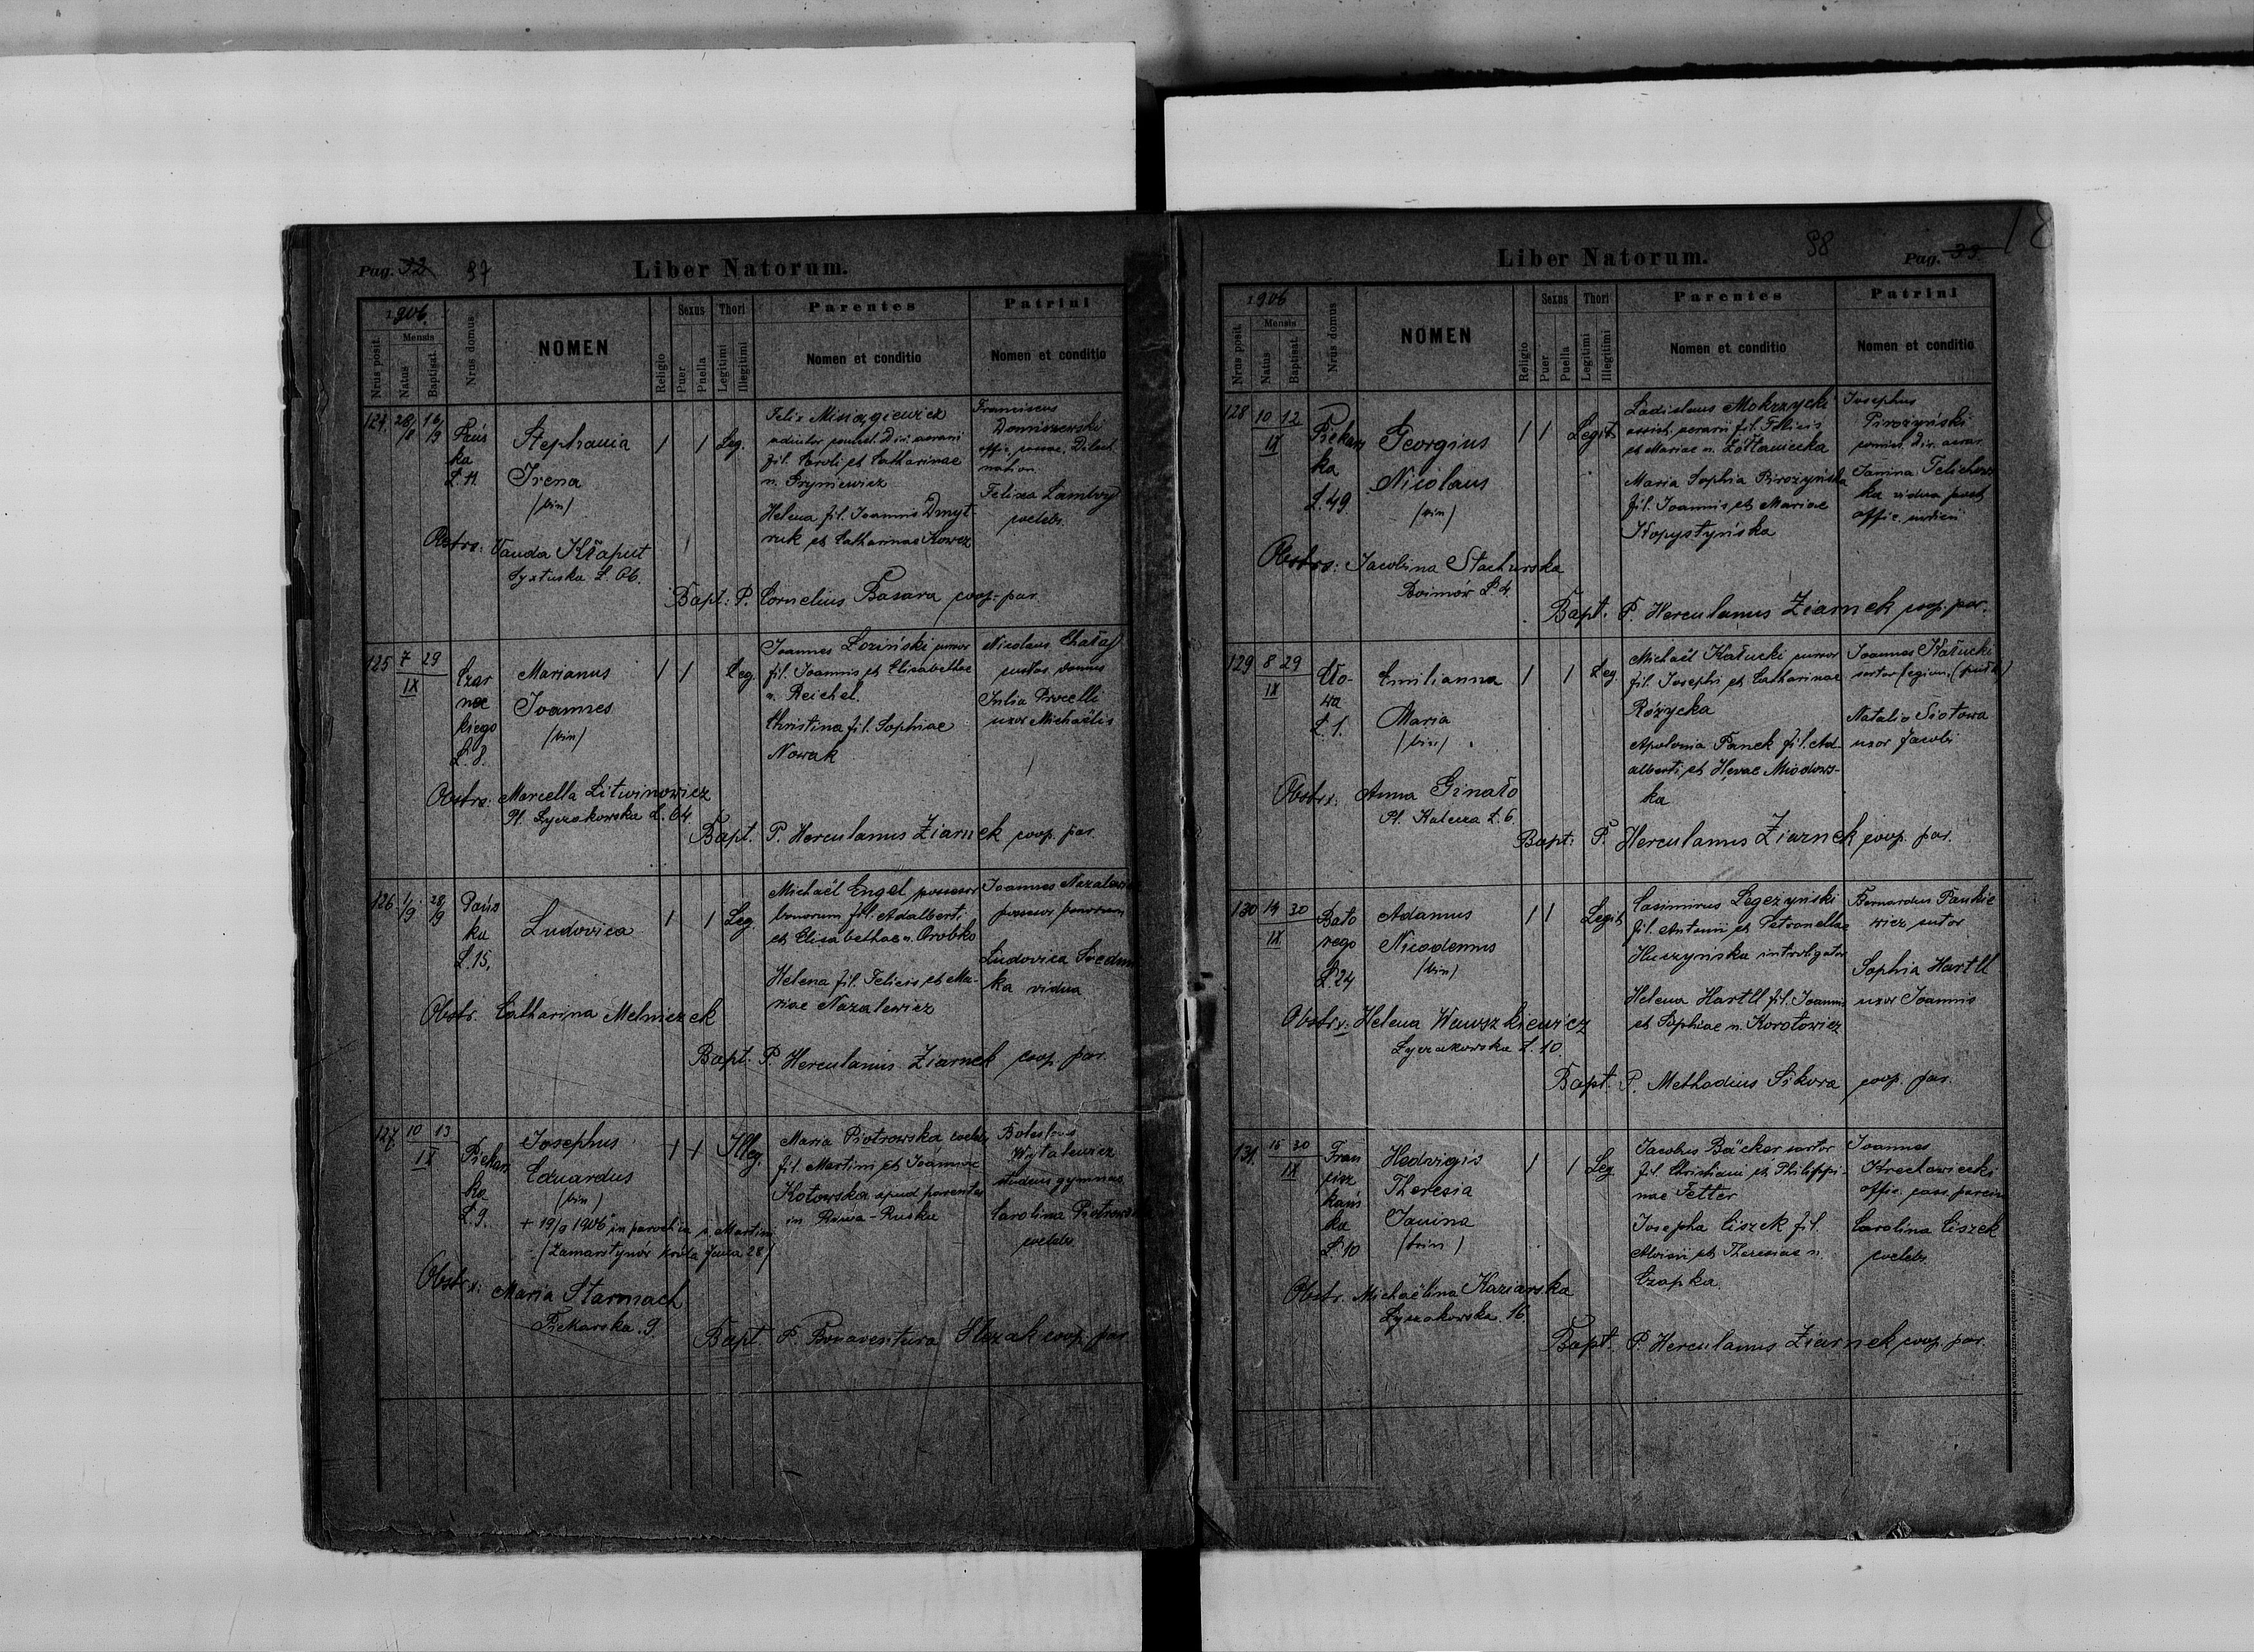 Pag. 32 97
Liber Natorum.
1906.
Nrus posit.
Mensis
Natus
Baptisat.
Nrus domus
NOMEN
Religio
Sexus
Puer
Puella
Thori
Legitimi
Illegitimi
Parentes
Nomen et conditio
Patrini
Nomen et conditio
124. 28/8 16/9
Pańs
ka
Ł. 11
Stephania
Irena
(bin)
1 1 Leg.
Felix Misiągiewicz
fil. Caroli et Catharinae
n. Hryniewicz
Helena fil. Joannis Dmyt
ruk et Catharinae Kowcz
Franciscus
Domiszewski
Felixa
coelebs.
Obstrx: Vanda Kłaput
Syxtuska Ł.
Bapt: P. Cornelius Basara coop. par.
125 7 29
IX
Czar
nec
kiego
Ł. 8.
Marianus
Joannes
(bin)
1 1 Leg.
Joannes Łoziński
fil. Joannis et Elisabethae
n. Reichel.
Christina fil. Sophiae
Nowak
Nicolaus
custos domus
Julia Porcelli
uxor Michaëlis
Obstrx: Marcella Litwinowicz
Pl. Łyczakowska Ł. 64.
Bapt. P. Herculanus Ziarnek coop. par.
126. 1/9 28/9
Pańs
ka
Ł. 15.
Ludovica
1 1 Leg.
Michaël Engel possessor
bonorum fil. Adalberti
et Elisabethae n. Orobko
Helena fil. Felicis et Ma-
riae Nazalewicz
Joannes
possessor bonorum
Ludovica
ka vidua
Obstr. Catharina Melniczek
Bapt: P. Herculanus Ziarnek coop. par.
127. 10 13
IX
Piekars
ka
Ł. 9.
Josephus
Eduardus
(bin)
+ 19/9 1906 in parochia s. Martini
(Zamarstynów króla Jana 28)
1 1 Illeg.
Maria Piotrowska coelebs
fil. Martini et Joannae
Kotowska apud parentes
in Rawa-Ruska
Boleslaus
Wytalewicz
studens gymnas.
Carolina Piotrowska
coelebs
Obstrx: Maria Starmach
Piekarska 9.
Bapt. P. Bonaventura coop. par.
Liber Natorum.
98
Pag. 33
1906
Nrus posit.
Mensis
Natus
Baptisat.
Nrus domus
NOMEN
Religio
Sexus
Puer
Puella
Thori
Legitimi
Illegitimi
Parentes
Nomen et conditio
Patrini
Nomen et conditio
128 10 12
IX
Piekars
ka
Ł. 49.
Georgius
Nicolaus
(bin)
1 1 Legit.
Ladislaus Mokrzycki
fil. Felicis
et Mariae n.
Maria Sophia Pirożyńska
fil. Joannis et Mariae
Kopystyńska
Josephus
Pirożyński
Janina
ka vidua post
Obstrx: Jacobina Stachurska
Ł. 4.
Bapt. P. Herculanus Ziarnek coop. par.
129 8 29
IX
Cło-
wa
Ł. 1.
Emilianna
Maria
(bin)
1 1 Leg.
Michaël Kałucki
fil. Josephi et Catharinae
Różycka
Apolonia Panek fil. Ad-
alberti et Hevae Miodows-
ka
Joannes Kałucki
Natalia Siotowa
uxor Jacobi
Obstrx: Anna Ginało
Pl. Kalecza Ł. 6.
Bapt: P. Herculanus Ziarnek coop. par.
130 14 30
IX
Bato
rego
Ł. 24
Adamus
Nicodemus
(bin)
1 1 Legit.
Casimirus Legeżyński
fil. Antonii et Petronellae
Huczyńska introligator
Helena Hartll fil. Joannis
et Sophiae n. Korotowicz
Bernardus Pankie
wicz sutor
Sophia Hartll
uxor Joannis
Obstrx: Helena
Łyczakowska Ł. 10.
Bapt. P. Methodius Sikora coop. par.
131. 15 30
IX
Fran
cisz
kańs
ka
Ł. 10
Hedvigis
Theresia
Janina
(trin)
1 1 Leg
Jacobus Bäcker sartor
fil. Christiani et Philippi-
nae Fetter
Josepha Ciszek fil.
Aloisii et Theresiae n.
Czapka.
Joannes
Strechowiecki
Carolina Ciszek
coelebs
Obstr. Michaëlina Kaziarska
Łyczakowska 16.
Bapt. P. Herculanus Ziarnek coop. par.